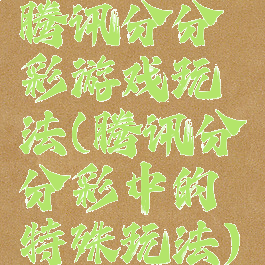 腾讯分分
彩游戏玩
法(腾讯分
分彩中的
特殊玩法)